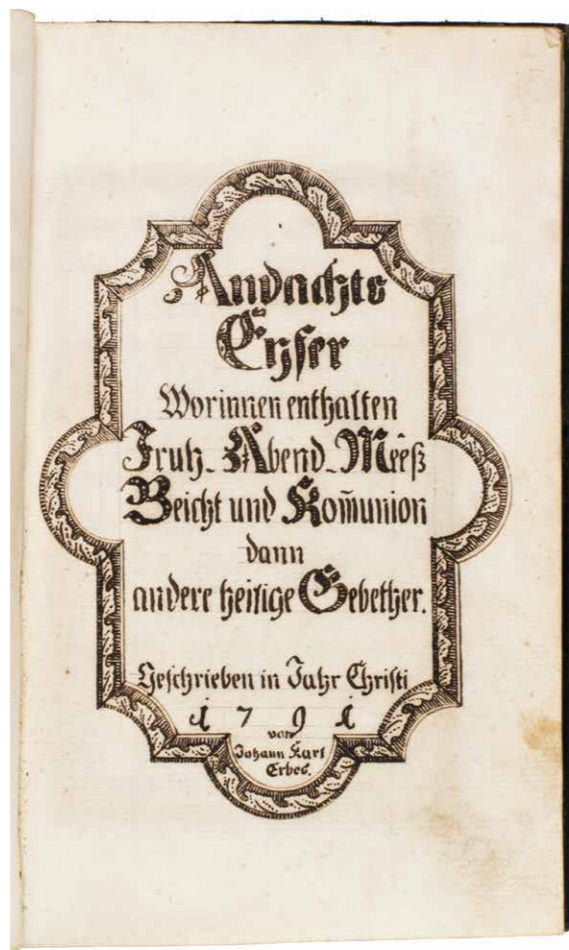 Andachts
Eyfer
Worinnen enthalten
Fruh- Abend- Meeß
Beicht und Kom̄union
dann
andere heilige Gebether.
Geschrieben in Jahr Christi
1791
von
Johann Karl
Erbes.